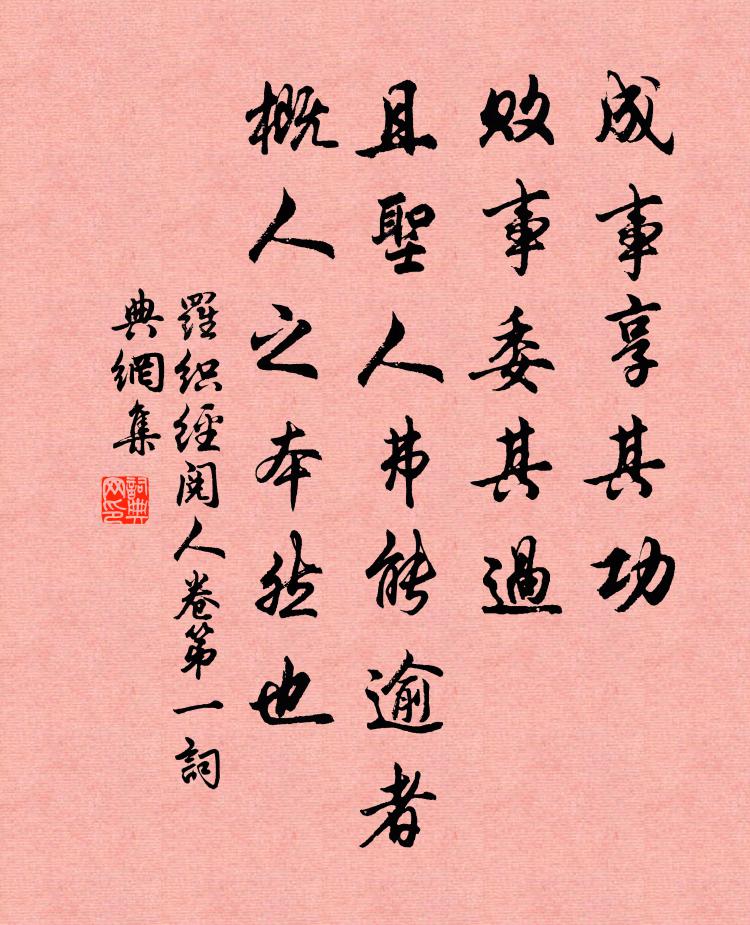 成事享其功
敗事委其過
且聖人弗能逾者
概人之本然也
羅織經閱人卷第一詞
典網集
詞典
网印